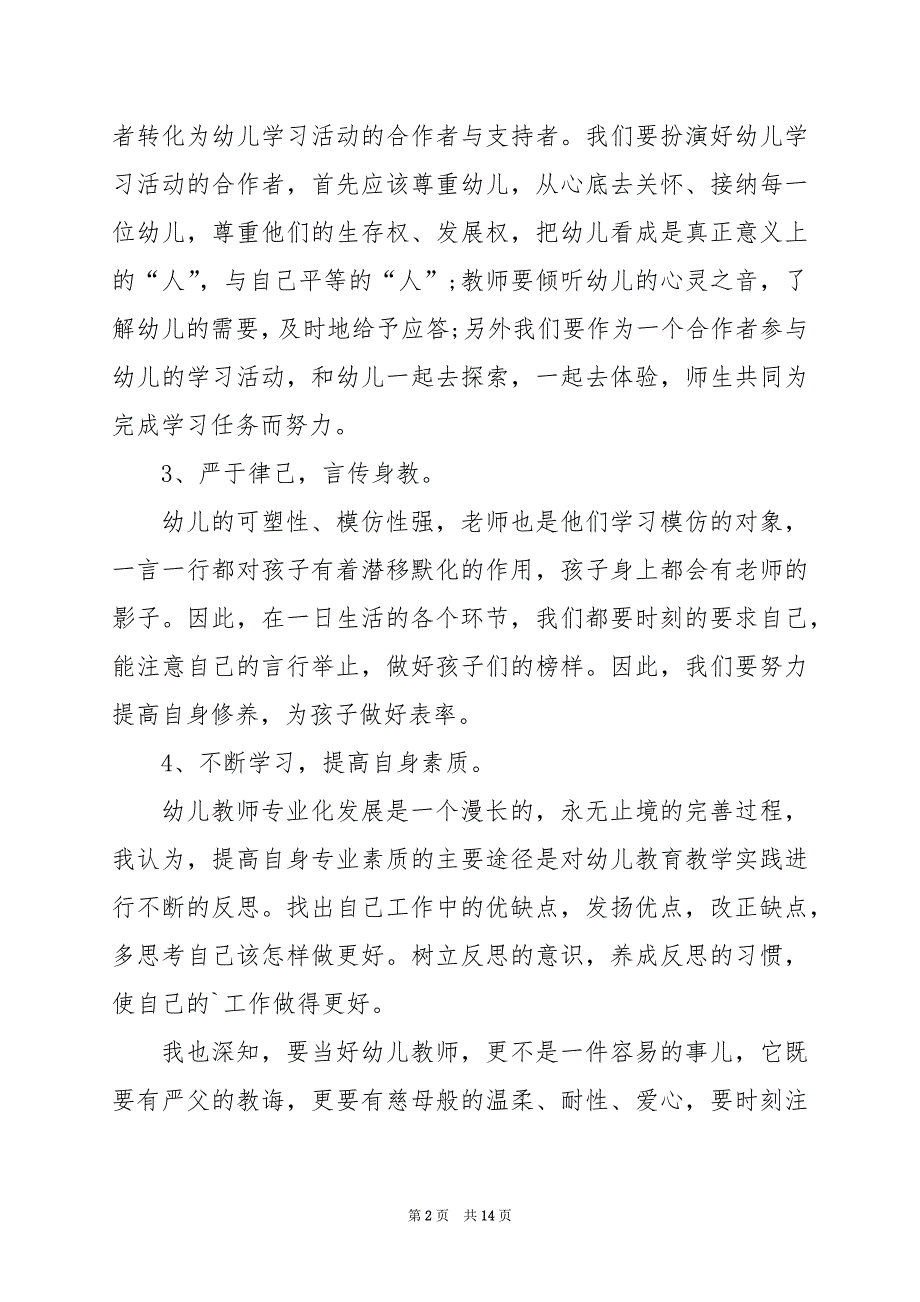 者转化为幼儿学习活动的合作者与支持者。我们要扮演好幼儿学
习活动的合作者，首先应该尊重幼儿，从心底去关怀、接纳每一
位幼儿，尊重他们的生存权、发展权，把幼儿看成是真正意义上
的“人”，与自己平等的“人”;教师要倾听幼儿的心灵之音，了
解幼儿的需要，及时地给予应答;另外我们要作为一个合作者参与
幼儿的学习活动，和幼儿一起去探索，一起去体验，师生共同为
完成学习任务而努力。
3、严于律己，言传身教。
幼儿的可塑性、模仿性强，老师也是他们学习模仿的对象，
一言一行都对孩子有着潜移默化的作用，孩子身上都会有老师的
影子。因此，在一日生活的各个环节，我们都要时刻的要求自己，
能注意自己的言行举止，做好孩子们的榜样。因此，我们要努力
提高自身修养，为孩子做好表率。
4、不断学习，提高自身素质。
幼儿教师专业化发展是一个漫长的，永无止境的完善过程，
我认为，提高自身专业素质的主要途径是对幼儿教育教学实践进
行不断的反思。找出自己工作中的优缺点，发扬优点，改正缺点，
多思考自己该怎样做更好。树立反思的意识，养成反思的习惯，
使自己的`工作做得更好。
我也深知，要当好幼儿教师，更不是一件容易的事儿，它既
要有严父的教诲，更要有慈母般的温柔、耐性、爱心，要时刻注
第 2 页 共 14 页